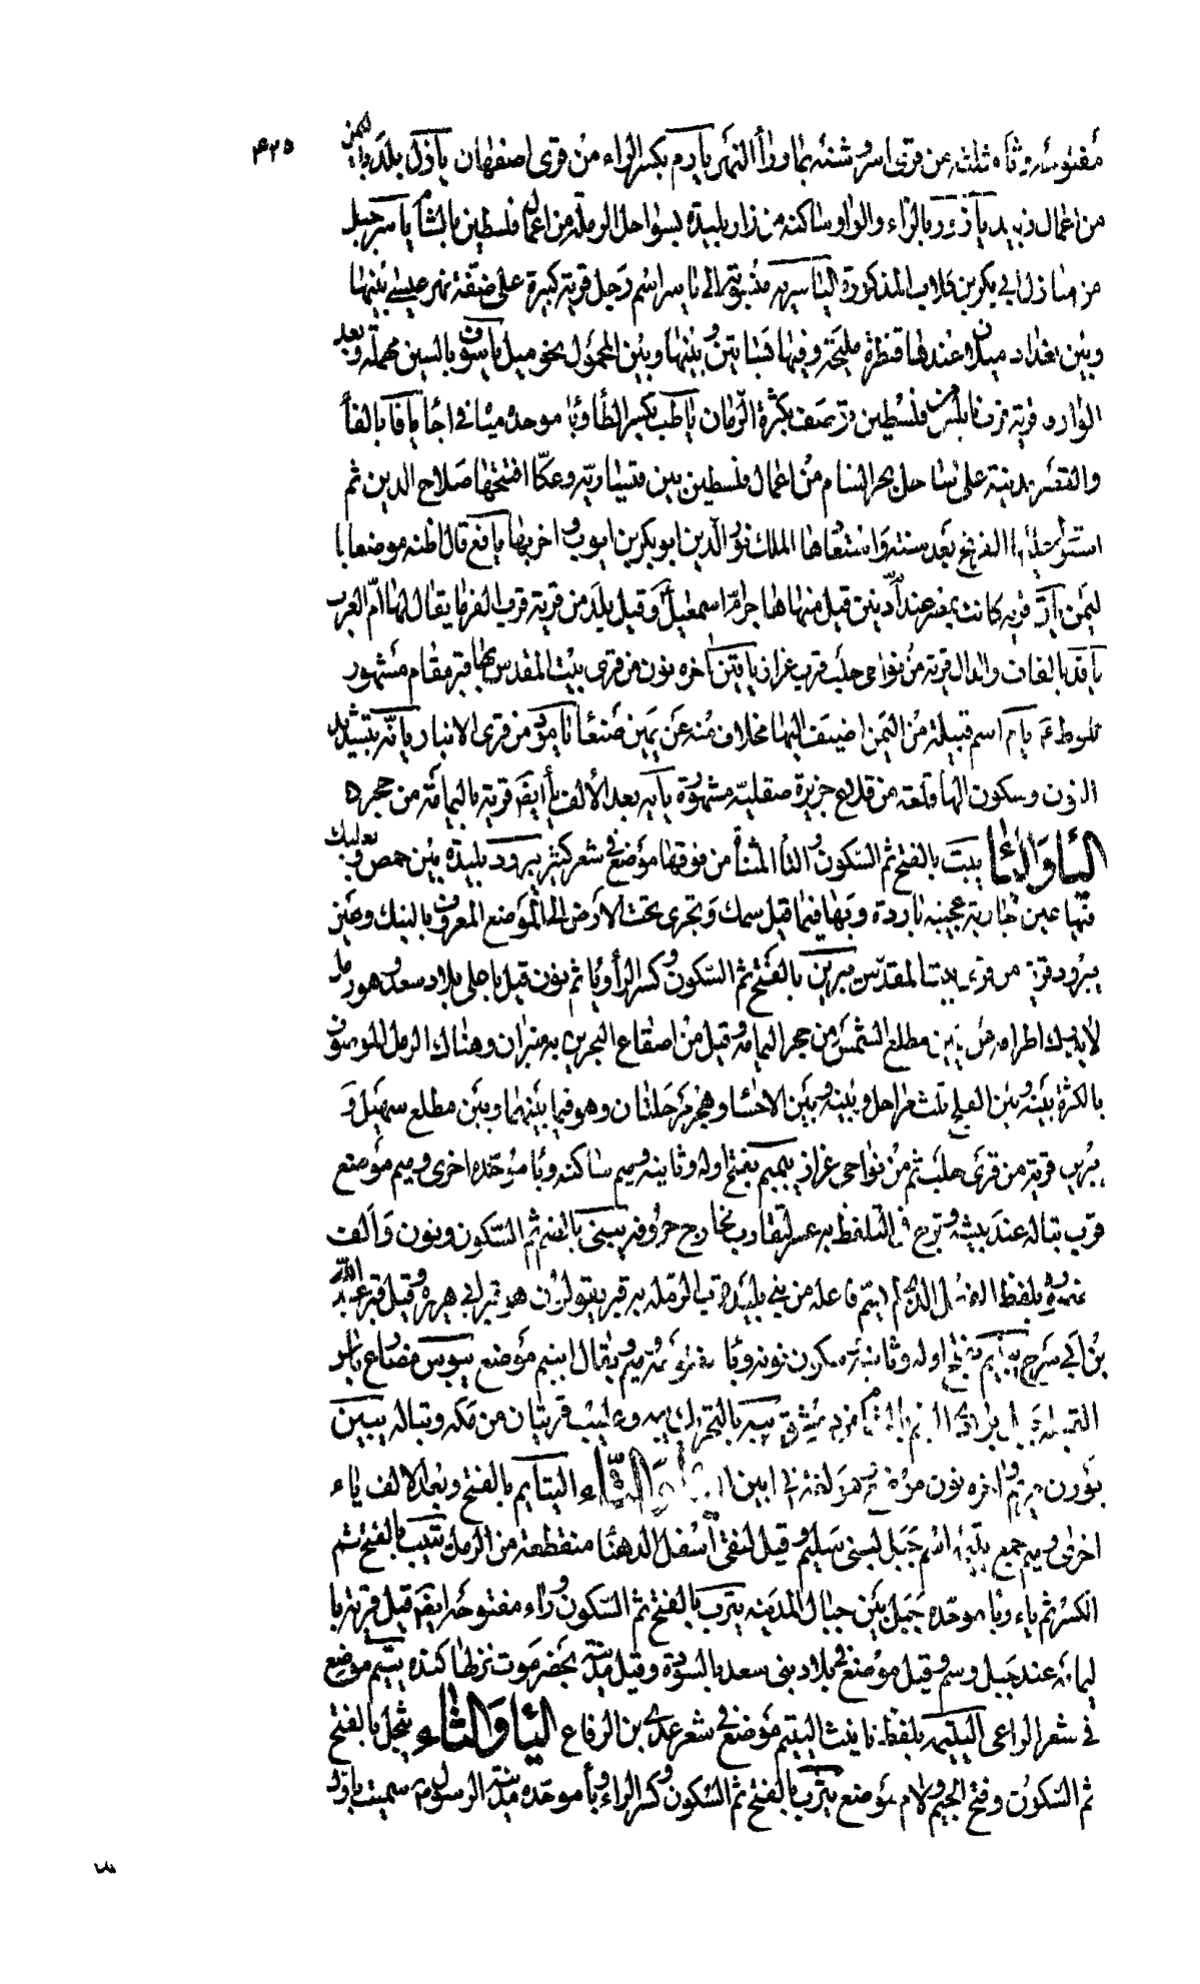 ٤٢٥
مفتوحة وثاء مثلثه من قرى اسروشنة بما وراأ النهر يارم بكسر الراء من قرى اصفهان يازل بلد باليمن
من اعمال زبيد يازور بالزاء والواو ساكنة من زا وبليدة بسواحل الرملة من اعمال فلسطين بالشام ياسر جبل
من منازل ابي بكر بن كلاب المذكورة الياسريه منسوبة الى ياسر اسم رجل قرية كبيرة على ضفة نهر عيسى بينها
وبين بغداد ميلان عندها قنطرة مليحة وفيها بساتين وبينها وبين المحول نحو ميل ياسوف بالسين مهملة وبعد
الواو ف قرية من نابلس من فلسطين توصف بكثرة الرمان ياطب بكسر الطأ وبا موحدة مياه في اجا يافا بالفأ
والقصر مدينة على ساحل بحر الشام من اعمال فلسطين بين قيساريه وعكا افتتحها صلاح الدين ثم
استولى عليها الفرنج بعد سنة واستعادها الملك نور الدين ابو بكر بن ايوب واخربها يافع قال اظنه موضعا با
ليمن ياق قريه كانت بمصر عند أم دنين قيل منها هاجر ام اسمعيل وقيل بلد من قرية قرب الفرما يقال لها ام العرب
ياقد بالقاف والدال قرية من نواحى حلب قرب عزاز ياقين آخره نون من قرى بيت المقدس بها قبر مقام مشهور
للوط عم يام اسم قبيلة من اليمن اضيف اليها مخلاف منه عن يمين صنعأ يامور من قرى الانبار يانه بتشديد
النون وسكون الها قلعة من قلاع جزيرة صقلية مشهورة يايه بعد الألف ياأ ايضا قرية باليمامة من حجر ه
اليا والبا يبت بالفتح ثم السكون والتأ المثناة من فوقها موضع في شعر كثير يبرود بليدة بين حمص وبعلبك
فيها عين جارية عجيبه باردة وبها فيما قيل سمك وتجرى تحت الارض الى الموضع المعروف بالنبك وعين
يبرود قرية من قرى بيت المقدس يبرين بالفتح ثم السكون وكسر الرأ ويا ثم نون قيل باعلى بلاد سعد وهو رمل
لا يدرك اطرافه عن يمين مطلع الشمس من حجر اليمامه وقيل من اصقاع البحرين به منبران وهناك الرمل الموصوف
بالكثرة بينه وبين الفلج ثلث مراحل وبينه وبين الاحسا وهجر مرحلتان وهو فيما بينهما وبين مطلع سهيل و
يبرين قرية من قرى حلب ثم من نواحى عزاز يبمبم بفتح اوله وثانيه وميم ساكنه وبا موحده اخرى وميم موضع
قرب تباله عند بيشه وترج في التلفظ به عسر لتقارب مخارج حروفه يبنى بالضم ثم السكون ونون والف
مقصورة بلفظ الفعل الذي لم يسم فاعله من بني بليد قرب الرمله به قبر يقولون هو قبر ابي هريره وقيل قبر عبد الله
بن ابي سرح يبنبم بفتح اوله وثانيه وسكون نونه وبا مفتوحة وميم ويقال ابنبم موضع يبوس مضارع بأس
جبل بالشام
من مكه وتباله يبيين
اخره نون موضع هو لغة في ابين اليا والتاء اليتايم بالفتح وبعد الالف ياء
اخرى وميم جمع يتيمة اسم جبل لبنى سليم وقيل لنقى أسفل الدهنا منقطعة من الرمل يتيب بالفتح ثم
الكسر ثم ياء وبا موحده جبل بين جبال المدينه يترب بالفتح ثم السكون وراء مفتوحه ايضا قيل قريه با
ليمامه عند جبل وسم وقيل موضع في بلاد بنى سعد بالسودة وقيل مدينة بحضرموت نزلها كنده يتيم موضع
في شعر الراعى اليتيمه بلفظ تانيث اليتيم موضع في شعر عدي بن الرقاع اليا والثاء يثجل بالفتح
ثم السكون وفتح الجيم ولام موضع يثرب بالفتح ثم السكون وكسر الراء وبأ موحده مدينة الرسول صم سميت باول